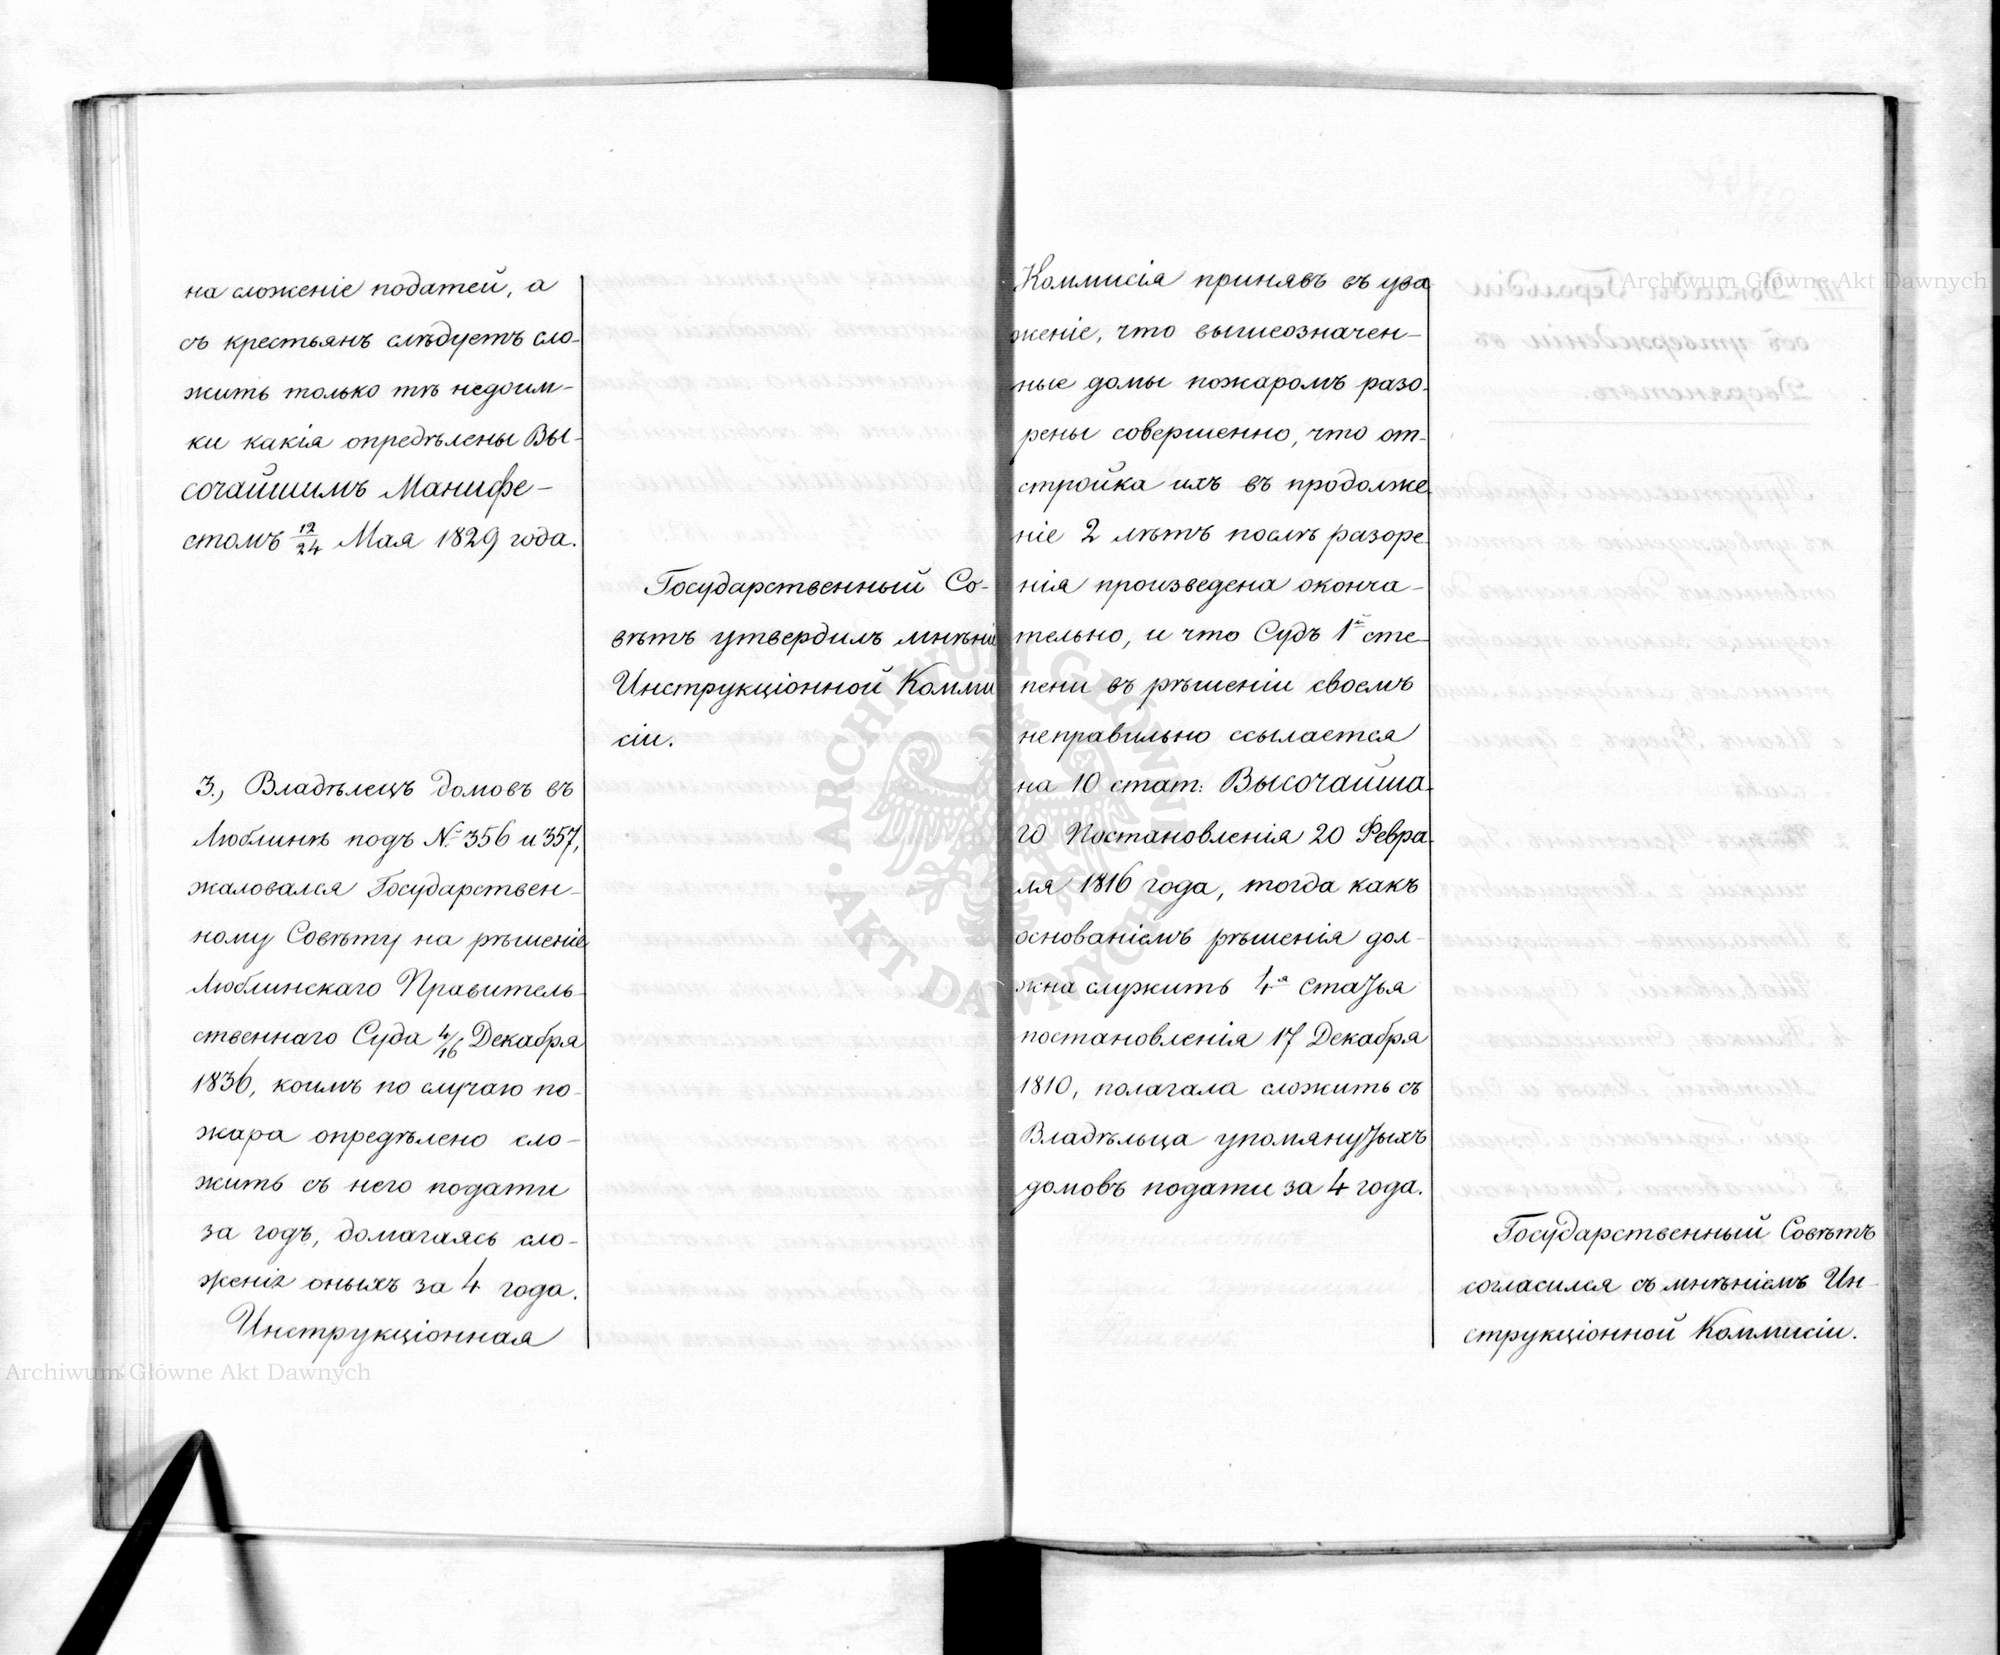 на сложеніе податей, а
съ крестьянъ слѣдуетъ сло-
жить только тѣ недоим-
ки какія опредѣлены Вы-
сочайшимъ Манифе-
стомъ 12/24 Мая 1829 года.
Государственный Со-
вѣтъ утвердилъ мнѣніе
Инструкціонной Комми
сіи.
3., Владѣлецъ домовъ въ
Люблинѣ подъ № 356 и 357,
жаловался Государствен-
ному Совѣту на рѣшеніе
Люблинскаго Правитель-
ственнаго Суда 4/16 Декабря
1836, коимъ по случаю по-
жара опредѣлено сло-
жить съ него подати
за годъ, домагаясь сло-
женія оныхъ за 4 года.
Инструкціонная
Коммисія принявъ въ ува
женіе, что вышеозначен-
ные домы пожаромъ разо-
рены совершенно, что от-
стройка ихъ въ продолже-
ніе 2 лѣтъ послѣ разоре-
нія произведена оконча-
тельно, и что Судъ 1й сте-
пени въ рѣшеніи своемъ
неправильно ссылается
на 10 стат: Высочайша-
го Постановленія 20 Февра-
ля 1816 года, тогда какъ
основаніемъ рѣшенія дол-
жна служить 4я статья
постановленія 17 Декабря
1810, полагала сложить съ
Владѣльца упомянутыхъ
домовъ подати за 4 года.
Государственный Совѣтъ
согласился съ мнѣніемъ Ин-
струкціонной Коммисіи.
Archiwum Główne Akt Dawnych
Archiwum Główne Akt Dawnych
ARCHIWUM GŁÓWNE · AKT DAWNYCH ·